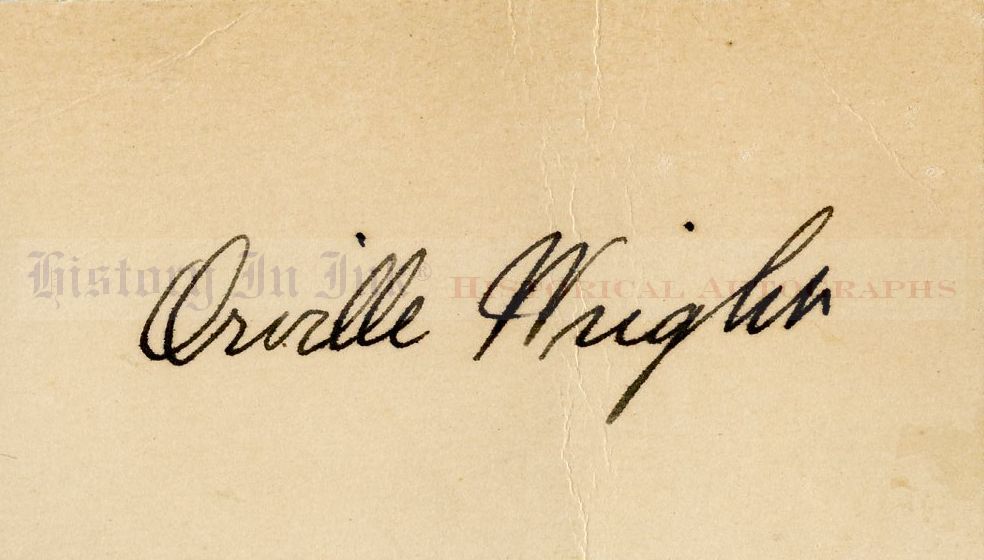 Orville Wright
History In Ink® Historical Autographs